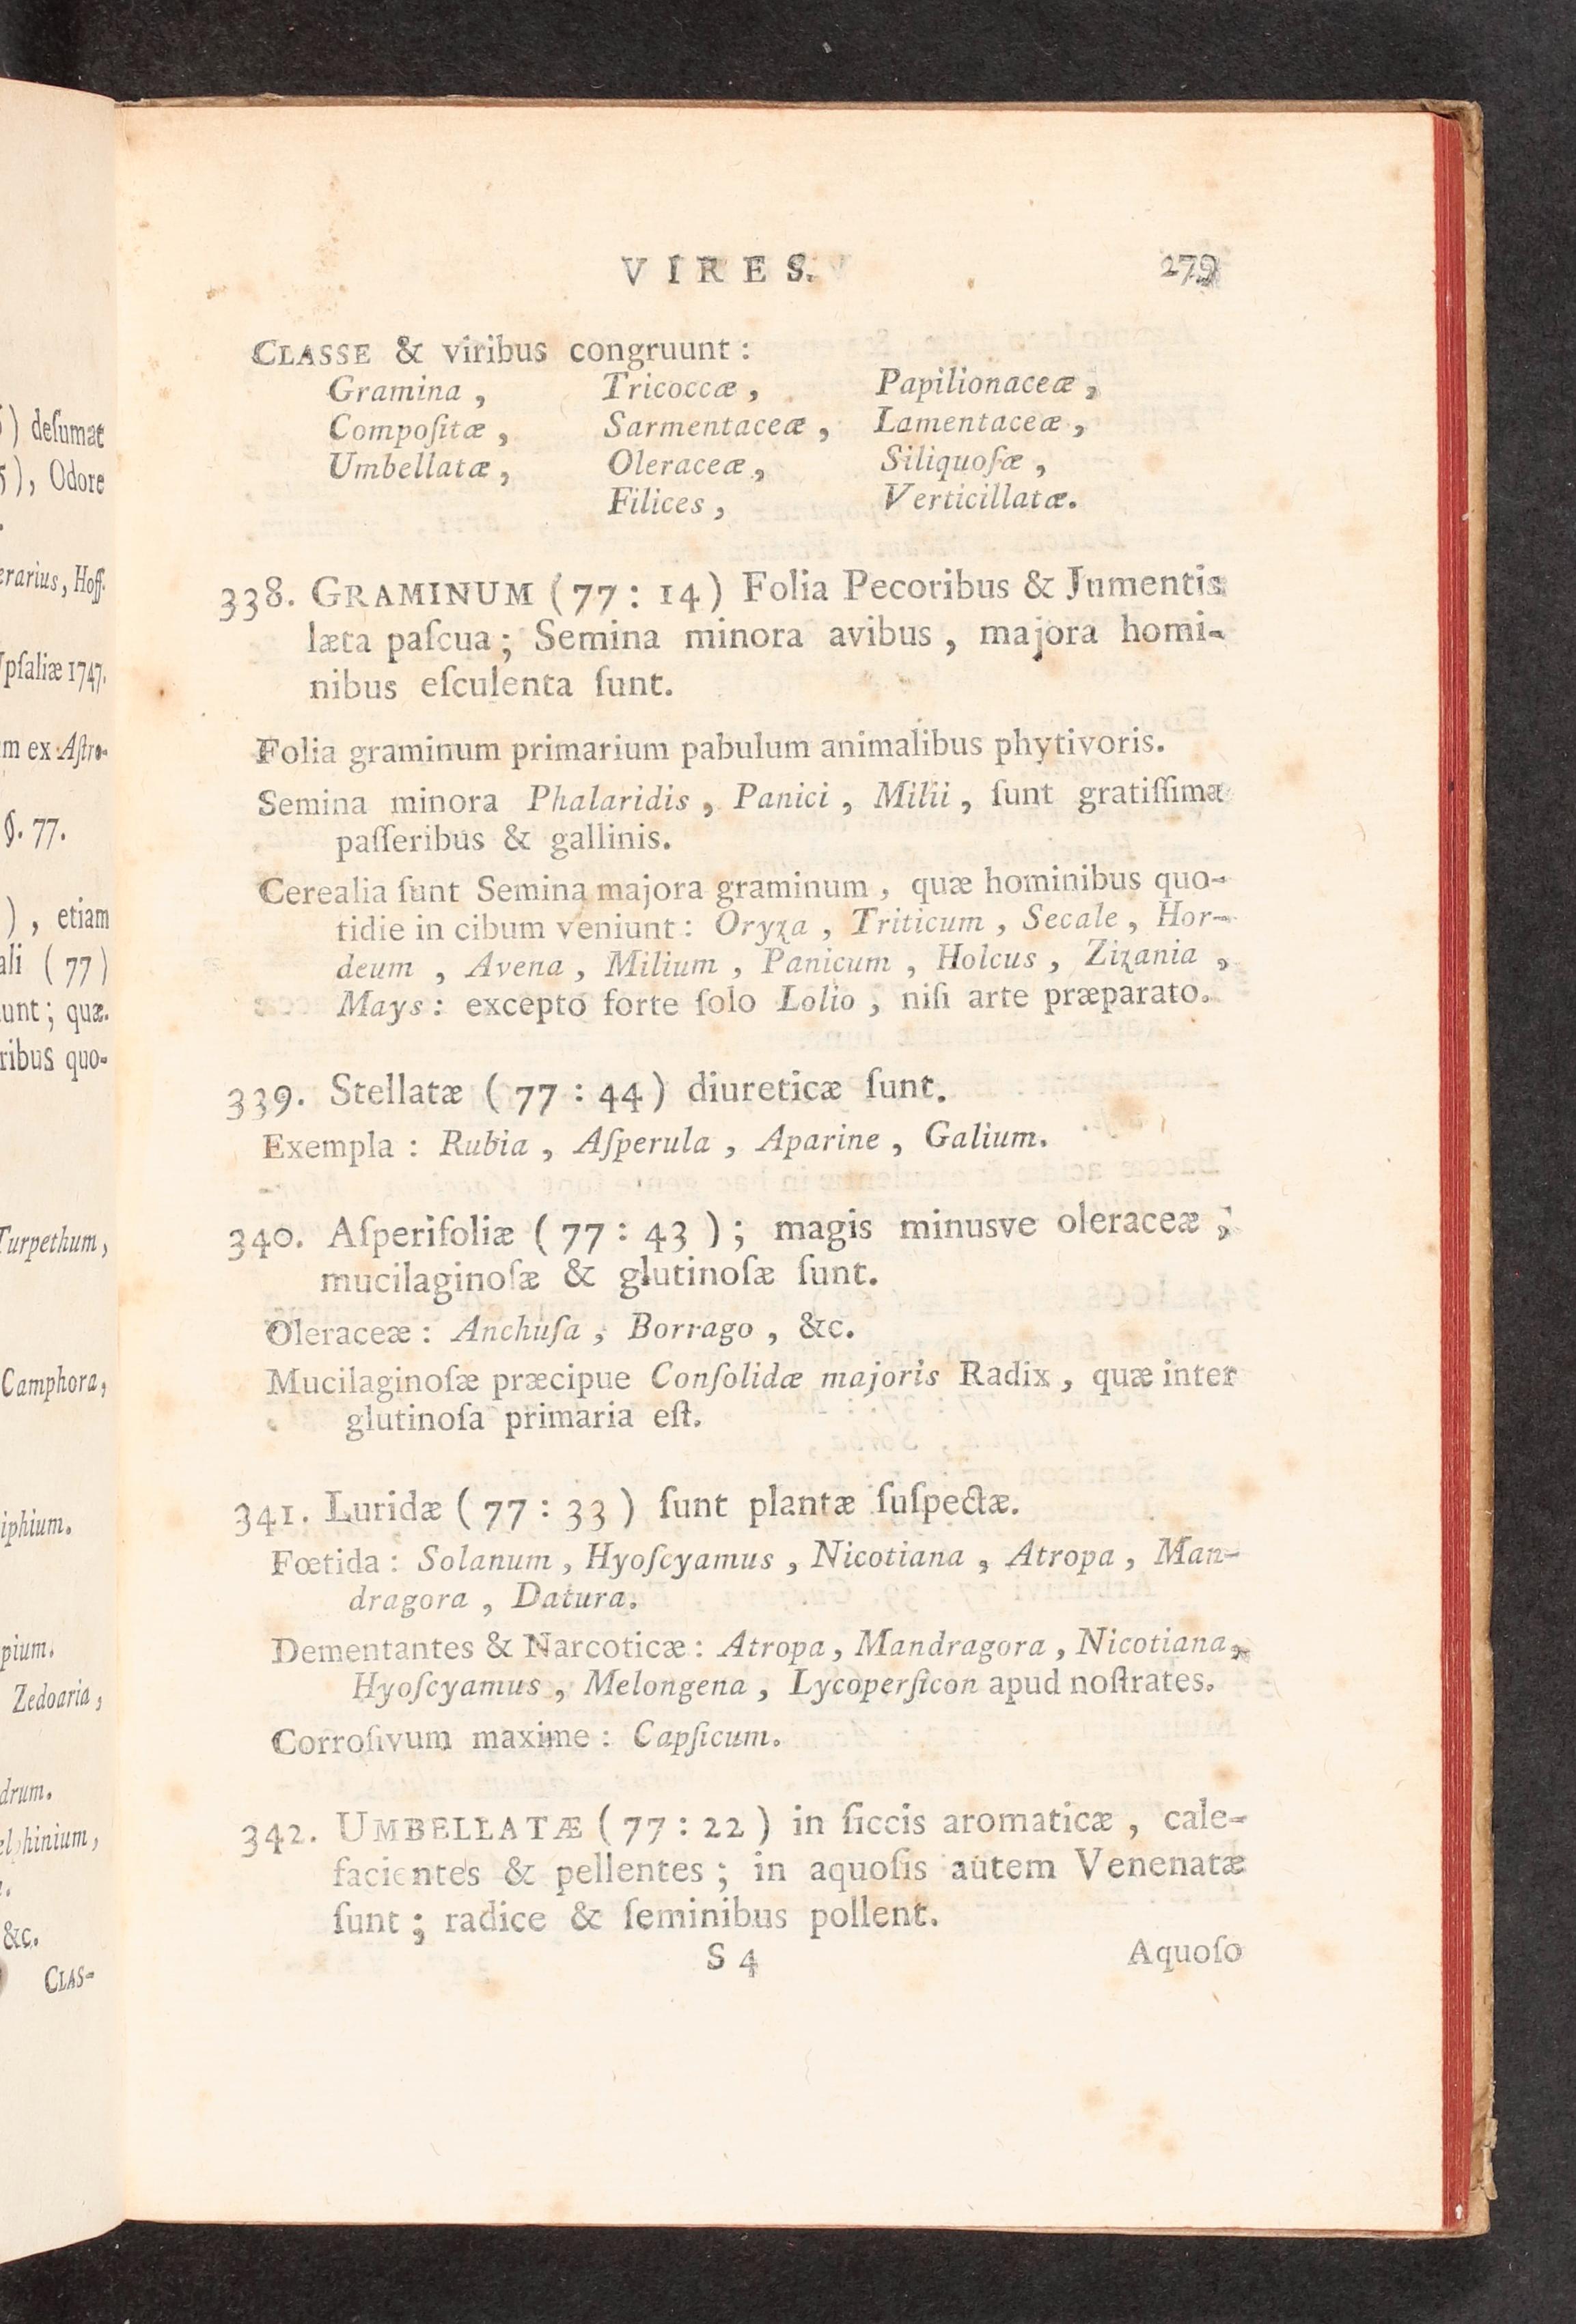 ) deſumat
), Odore
erarius, Hoff.
Upſaliæ 1747.
m ex Aſtro-
§. 77.
) , etiam
ali ( 77 )
unt ; quæ.
ribus quo-
Turpethum,
Camphora,
iphium.
pium.
Zedoaria,
drum.
elphinium,
&c.
CLAS-
VIRES. 279
CLASSE & viribus congruunt :
Gramina , Tricoccæ , Papilionaceæ ,
Compoſitæ , Sarmentaceæ , Lamentaceæ ,
Umbellatæ , Oleraceæ , Siliquoſæ ,
Filices , Verticillatæ.
338. GRAMINUM ( 77 : 14 ) Folia Pecoribus & Jumentis
læta paſcua ; Semina minora avibus , majora homi-
nibus eſculenta ſunt.
Folia graminum primarium pabulum animalibus phytivoris.
Semina minora Phalaridis , Panici , Milii , ſunt gratiſſima
paſſeribus & gallinis.
Cerealia ſunt Semina majora graminum , quæ hominibus quo-
tidie in cibum veniunt : Oryza , Triticum , Secale , Hor-
deum , Avena , Milium , Panicum , Holcus , Zizania ,
Mays : excepto forte ſolo Lolio , niſi arte præparato.
339. Stellatæ ( 77 : 44 ) diureticæ ſunt.
Exempla : Rubia , Aſperula , Aparine , Galium.
340. Aſperifoliæ ( 77 : 43 ) ; magis minusve oleraceæ ,
mucilaginoſæ & glutinoſæ ſunt.
Oleraceæ : Anchuſa , Borrago , &c.
Mucilaginoſæ præcipue Conſolidæ majoris Radix , quæ inter
glutinoſa primaria eſt.
341. Luridæ ( 77 : 33 ) ſunt plantæ ſuſpectæ.
Fœtida : Solanum , Hyoſcyamus , Nicotiana , Atropa , Man-
dragora , Datura.
Dementantes & Narcoticæ : Atropa , Mandragora , Nicotiana ,
Hyoſcyamus , Melongena , Lycoperſicon apud noſtrates.
Corroſivum maxime : Capſicum.
342. UMBELLATÆ ( 77 : 22 ) in ſiccis aromaticæ , cale-
facientes & pellentes ; in aquoſis autem Venenatæ
ſunt ; radice & ſeminibus pollent.
S 4 Aquoſo